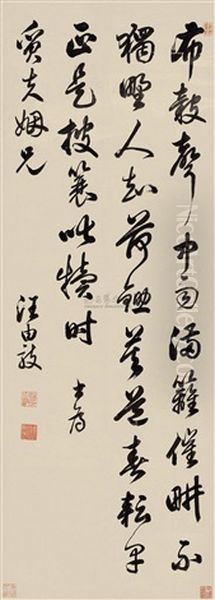 布穀聲中雨滿籬催畊不
獨野人知荷鋤莫道春耘早
正是披蓑叱犢时 書為
質夫姻兄
汪由敦